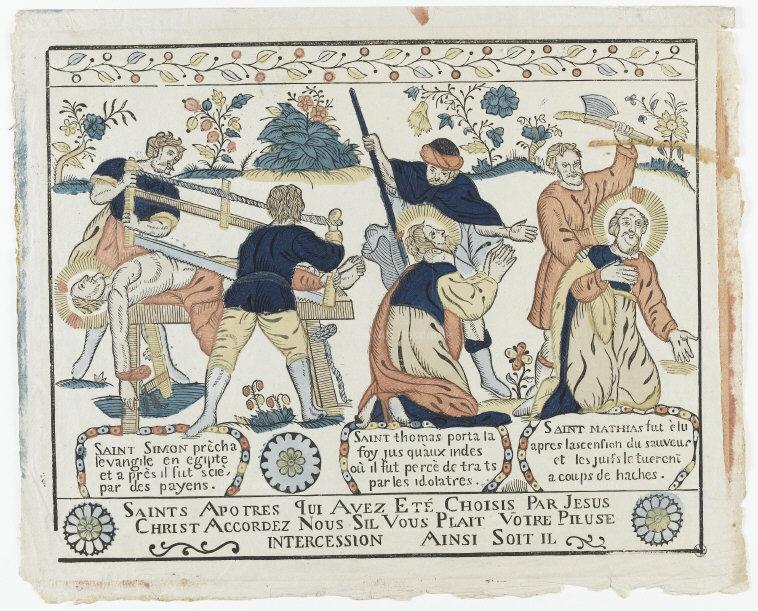 SAINT SIMON prêcha
levangile en egipte
et a près il fut scie
par des payens.
SAINT thomas porta la
foy jus quàux indes
où il fut percè de tra ts
par les idolatres.
SAINT MATHIAS fut èlu
apres lascension du sauveur
et les juifs le tuerent
a coups de haches.
SAINTS APOTRES QUI AVEZ ETÉ CHOISIS PAR JESUS
CHRIST ACCORDEZ NOUS SIL VOUS PLAIT VOTRE PIEUSE
INTERCESSION AINSI SOIT IL